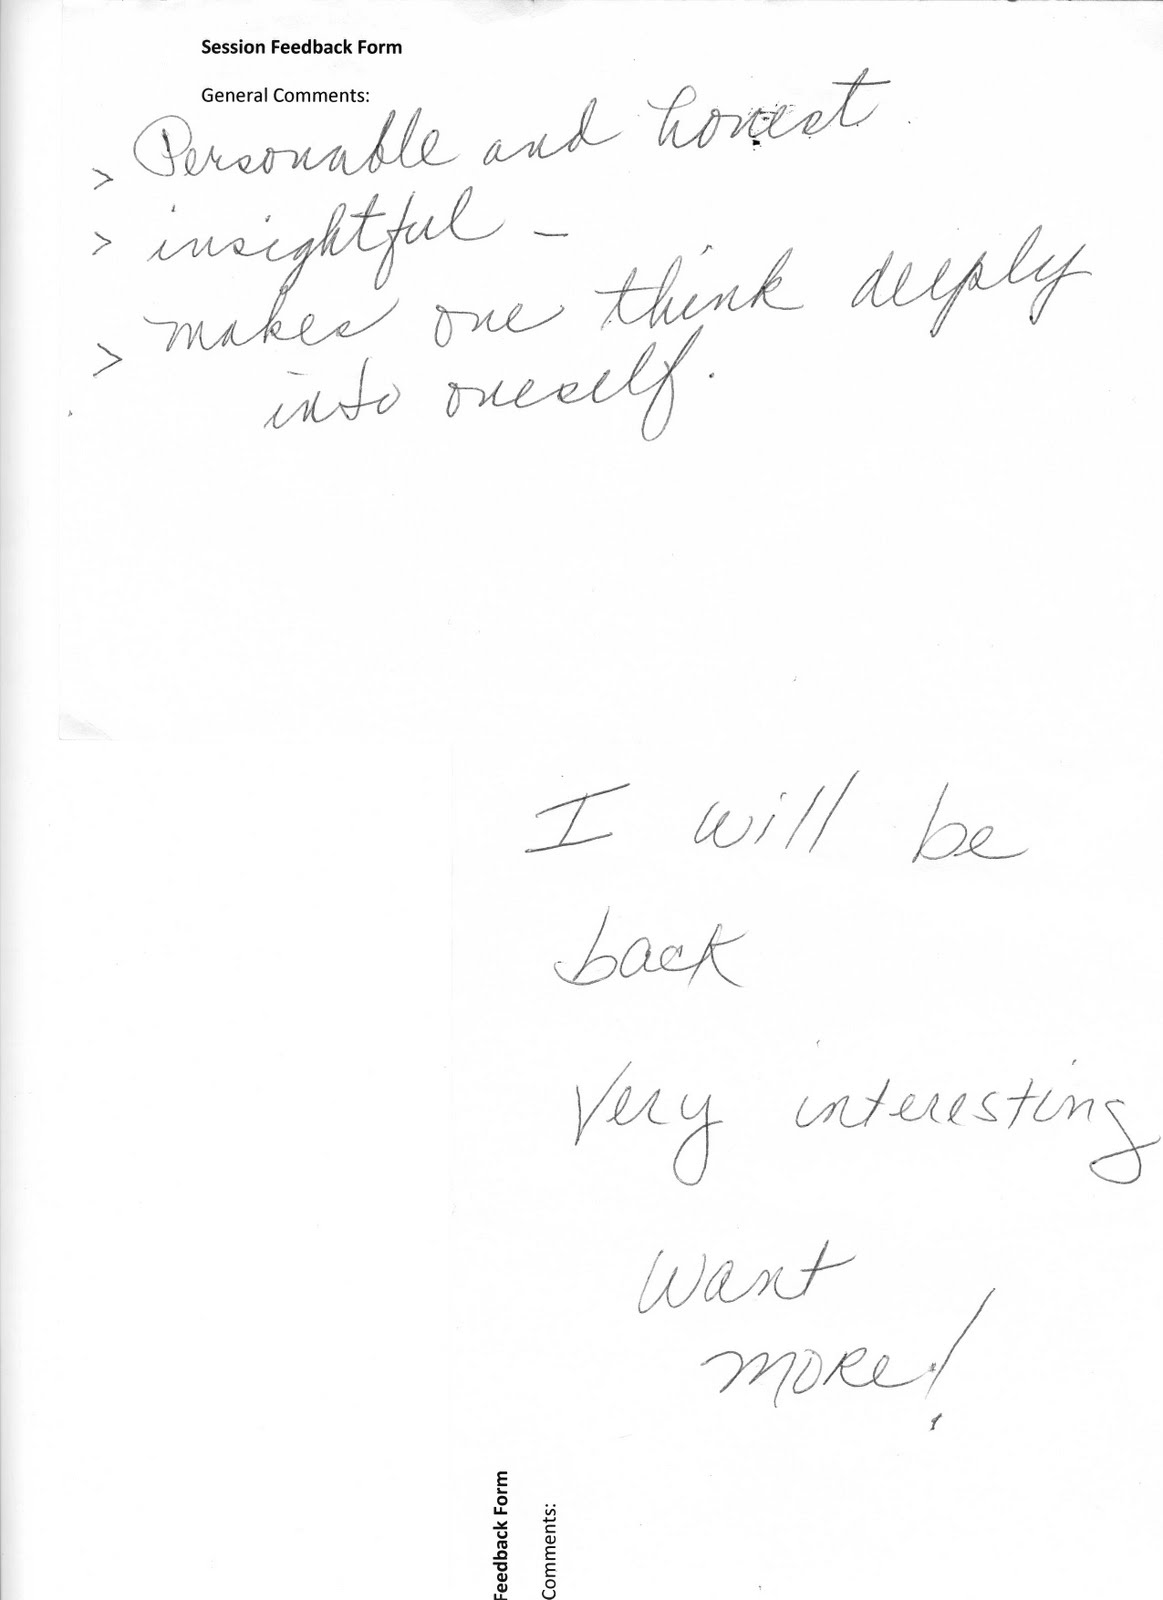 Session Feedback Form
General Comments:
> Personable and honest
> insightful –
> makes one think deeply
into oneself.
I will be
back
Very interesting
Want
more!
Feedback Form
Comments: